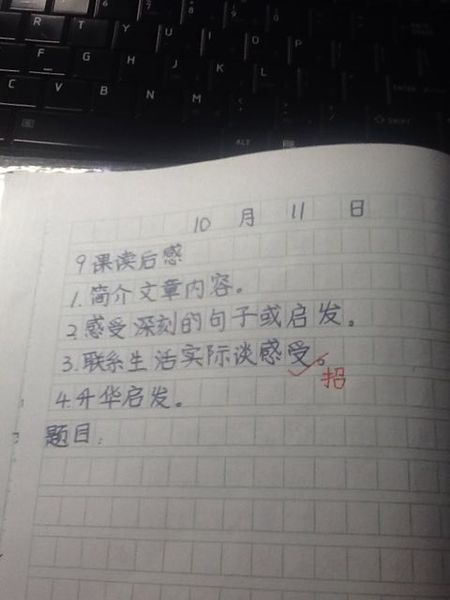 R T Y U I O P
F G H J K L
C V B N M
ALT
SHIFT
10 月 11 日
9课读后感
1.简介文章内容。
2.感受深刻的句子或启发。
3.联系生活实际谈感受。
4.升华启发。
题目: